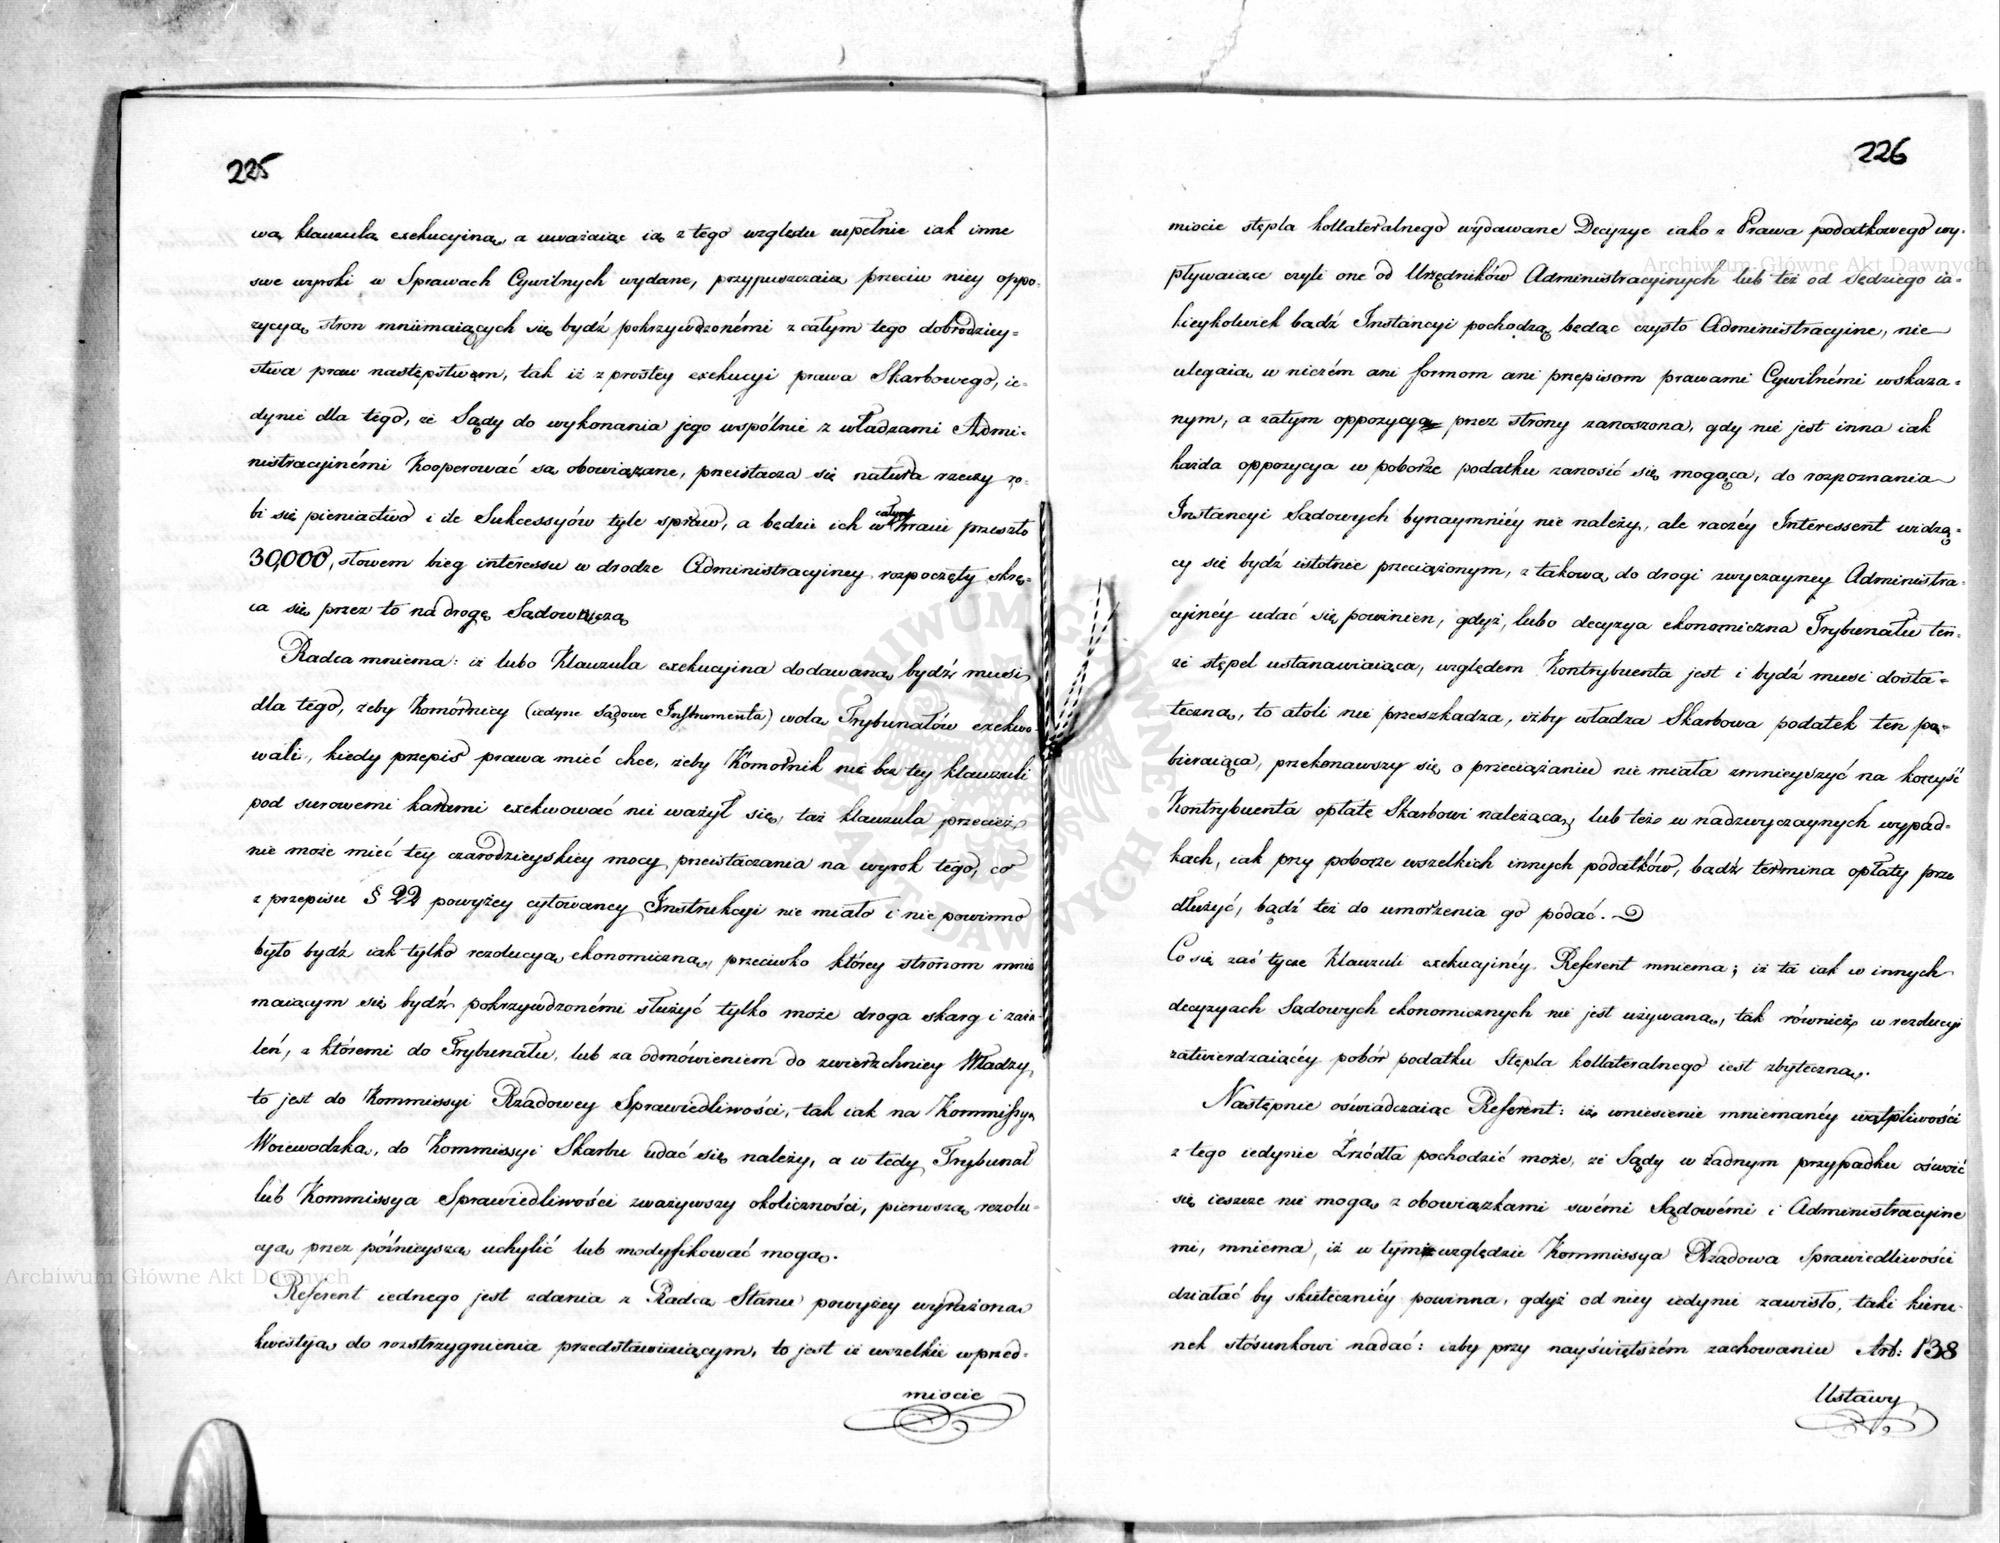 225
wą klauzulą exekucyiną, a uważaiąc ią z tego względu zupełnie iak inne
swe wyroki w Sprawach Cywilnych wydane, przypuszczaią przeciw niey oppo-
zycyą stron mniemaiących się bydź pokrzywdzonémi z całym tego dobrodziey-
stwa praw następstwem, tak iż z prostey exekucyi prawa Skarbowego, ie-
dynie dla tego, że Sądy do wykonania jego wspólnie z władzami Admi-
nistracyinémi kooperować są obowiązane, przeistacza się natura rzeczy ro-
bi się pieniactwo i ile Sukcessyów tyle spraw, a będzie ich w całym Kraiu przeszło
30,000, słowem bieg interessu w drodze Administracyiney rozpoczęty skrę-
ca się przez to na drogę Sądowniczą
Radca mniema: iż lubo Klauzula exekucyina dodawana bydź musi
dla tego, żeby Komórnicy (iedyne Sądowe Instrumenta) wolą Trybunałów exekwo-
wali, kiedy przepis prawa mieć chce, żeby Komornik nic bez tey klauzuli
pod surowemi karami exekwować nie ważył się, taż klauzula przecież
nie może mieć tey czarodzieyskiey mocy przeistaczania na wyrok tego, co
z przepisu § 22 powyżey cytowaney Instrukcyi nie miało i nie powinno
było bydź iak tylko rezolucyą ekonomiczną, przeciwko którey stronom mnie
maiącym się bydź pokrzywdzonémi służyć tylko może droga skarg i zaża-
leń, z któremi do Trybunału, lub za odmówieniem do zwierzchniey Władzy,
to jest do Kommissyi Rządowey Sprawiedliwości, tak iak na Kommissyą
Woiewodzką, do Kommissyi Skarbu udać się należy, a w tedy Trybunał
lub Kommissya Sprawiedliwości zważywszy okoliczności, pierwszą rezolu-
cyą przez późnieyszą uchylić lub modyfikować mogą.
Referent iednego jest zdania z Radcą Stanu powyżey wyrażoną
kwestyą do rozstrzygnienia przedstawiaiącym, to jest iż wszelkie w przed-
miocie
226
miocie stępla kollateralnego wydawane Decyzye iako z Prawa podatkowego wy-
pływaiące czyli one od Urzędników Administracyinych lub też od Sędziego ia-
kieykolwiek bądź Instancyi pochodzą będąc czysto Administracyine, nie
ulegaią w niczém ani formom ani przepisom prawami Cywilnémi wskaza-
nym, a zatym oppozycya przez strony zanoszona, gdy nie jest inna iak
każda oppozycya w poborze podatku zanosić się mogąca, do rozpoznania
Instancyi Sądowych bynaymniéy nie należy, ale raczéy Interessent widzą-
cy się bydź istotnie przeciążonym, z takową do drogi zwyczayney Administra-
cyinéy udać się powinien, gdyż, lubo decyzya ekonomiczna Trybunału ten-
że stępel ustanawiaiąca, względem Kontrybuenta jest i bydź musi dosta-
teczną, to atoli nie przeszkadza, iżby władza Skarbowa podatek ten po-
bieraiąca, przekonawszy się o przeciążaniu nie miała zmnieyszyć na korzyść
Kontrybuenta opłatę Skarbowi należącą, lub też w nadzwyczaynych wypad-
kach, iak przy poborze wszelkich innych podatków, bądź termina opłaty prze
dłużyć, bądź też do umorzenia go podać.
Co się zaś tycze Klauzuli exekucyinéy Referent mniema; iż ta iak w innych
decyzyach Sądowych ekonomicznych nie jest używaną, tak również w rezolucyi
zatwierdzaiącéy pobór podatku Stępla kollateralnego iest zbyteczną.
Następnie oświadczaiąc Referent: iż wniesienie mniemanéy wątpliwości
z tego iedynie Źrzódła pochodzić może, że Sądy w żadnym przypadku oświoić
się ieszcze nie mogą z obowiązkami swémi Sądowémi i Administracyine
mi, mniema, iż w tym względzie Kommissya Rządowa Sprawiedliwości
działać by skuteczniéy powinna, gdyż od niey iedynie zawisło, taki kieru-
nek stósunkowi nadać: iżby przy nayświętszém zachowaniu Art: 138
Ustawy